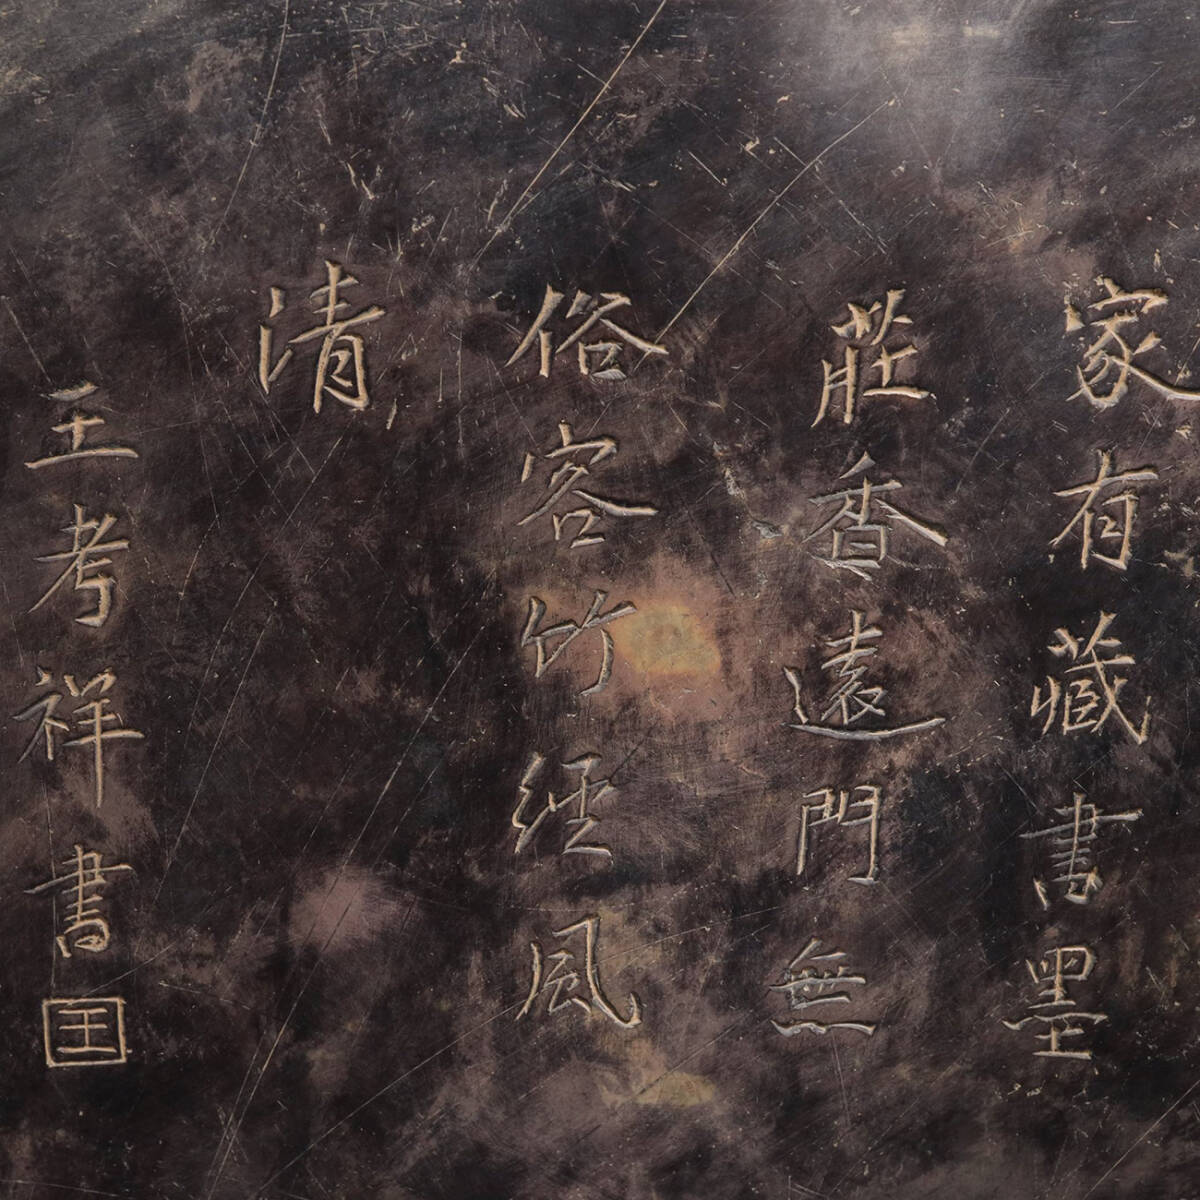 家有藏書墨
莊香遠門無
俗客竹經風
清
王考祥書
王